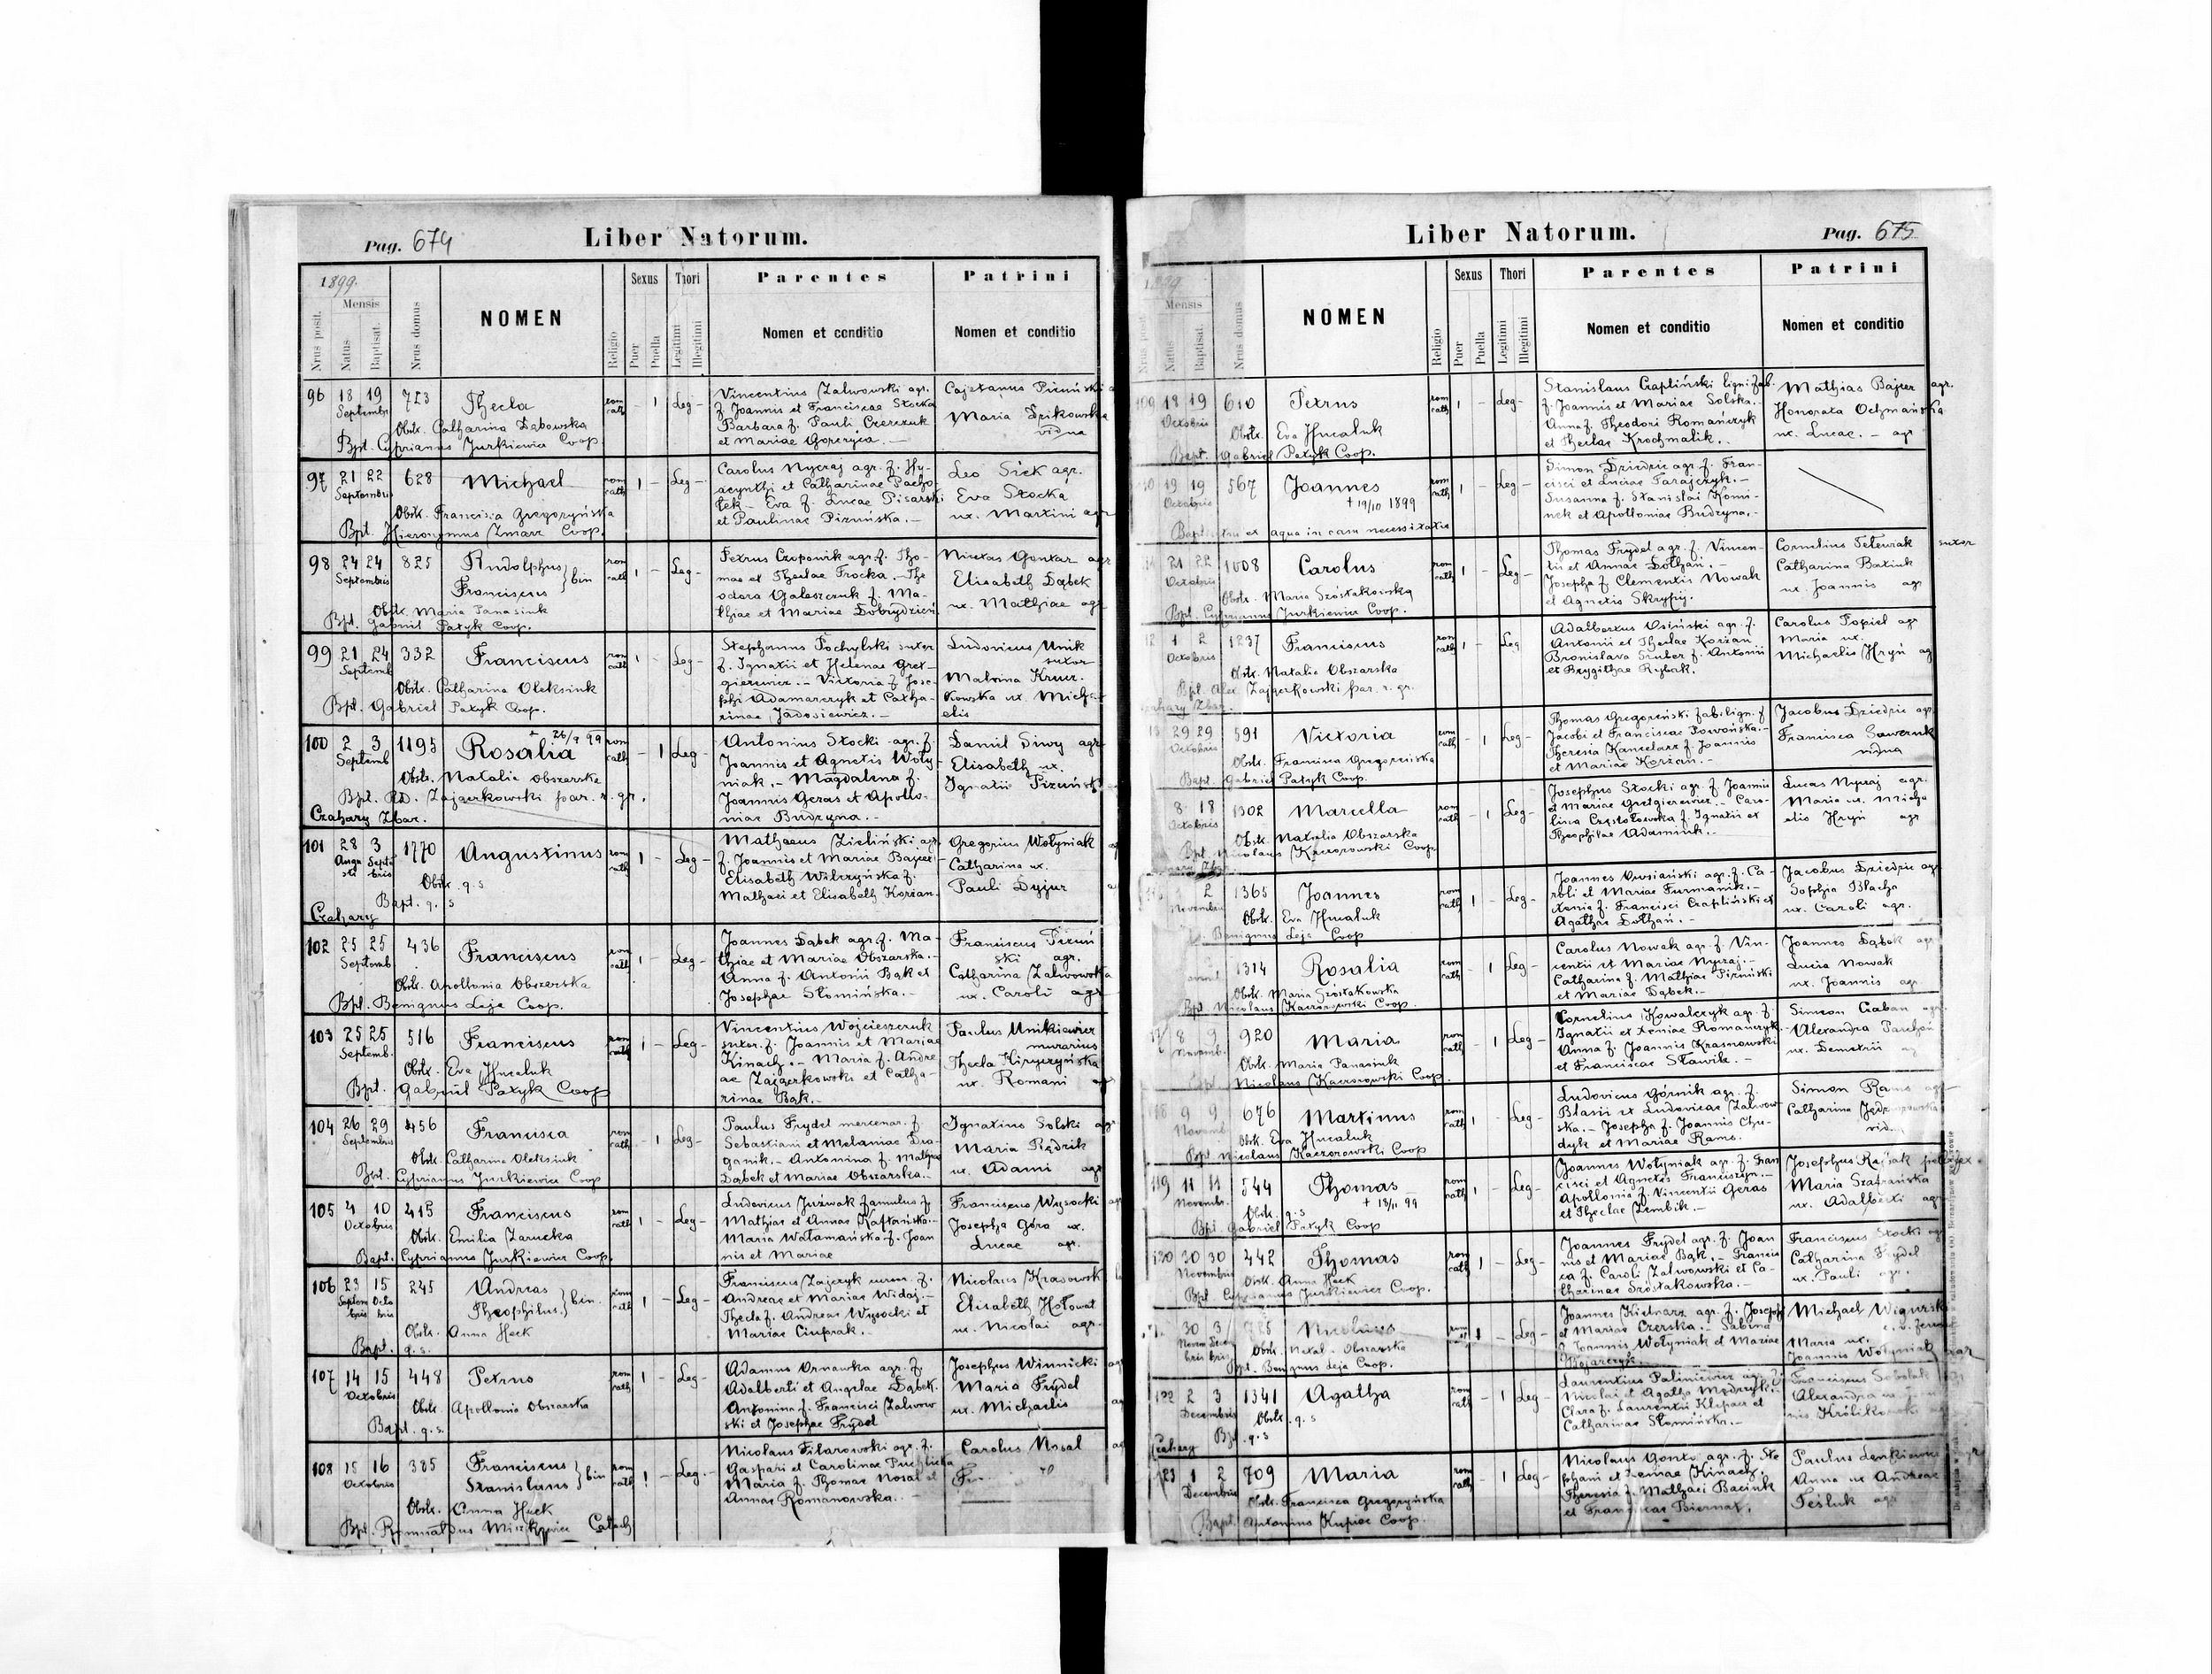 Pag. 674
Liber Natorum.
1899.
Mensis
Nrus posit.
Natus
Baptisat.
Nrus domus
NOMEN
Religio
Sexus
Puer
Puella
Thori
Legitimi
Illegitimi
Parentes
Nomen et conditio
Patrini
Nomen et conditio
96 18 19 723 Thecla rom cath - 1 Leg -
Septembr
Obstr. Catharina Dąbowska
Bpt. Cyprianus Jurkiewicz Coop
Vincentius Zalwowski agr.
f. Joannis et Franciscae Stocka
Barbara f. Pauli Czerczuk
et Mariae
Cajetanus
Maria
vidua
97 21 22 628 Michael rom cath 1 - Leg -
Septembris
Obstr. Francisca Gregoryńska
Bpt. Hieronymus Zmarz Coop.
Carolus Nycraj agr. f. Hy-
acynthi et Catharinae Pacho-
łek - Eva f. Lucae Pisarski
et Paulinae Pizuńska. -
Leo Sick agr.
Eva Stocka
ux. Martini agr
98 24 24 825 Rudolphus
Franciscus } bin rom cath 1 - Leg -
Septembris
Obstr. Maria Panasiuk
Bpt. Gabriel Patyk Coop.
Petrus Czopowik agr. f. Tho-
mae et Theclae Trocka. - The
odora Galeszczuk f. Ma-
thiae et Mariae
Gontar agr
Elisabeth Dąbek
ux. Mathiae agr
99 21 24 332 Franciscus 1 - Leg -
Septemb
Obstr. Catharina Oleksiuk
Bpt. Gabriel Patyk Coop.
Stephanus Pochylski sutor
f. Ignatii et Helenae Gret-
gierewicz. - Victoria f. Jose-
phi Adamarczyk et Catha-
rinae Jadosiewicz. -
Ludovicus Unik
sutor
Malvina Krucz.
kowska ux. Micha-
elis
100 2 3 1195 Rosalia + 26/9 99 rom cath - 1 Leg -
Septemb
Obstr. Natalia Obszarska
Bpt. Rd. Zajączkowski par. r. gr.
Czahary Zbar.
Antonius Stocki agr. f.
Joannis et Agnetis Woły-
niak. - Magdalena f.
Joannis Geras et Apollo-
niae Budzyna. -
Daniel Siwy agr
Elisabeth ux.
Ignatii
101 28 3 1770 Augustinus rom cath 1 - Leg -
Augu Septe
sti bris
Obstr. q. s
Bapt. q. s
Czahary
Mathaeus Zieliński agr.
f. Joannis et Mariae Bajcer
Elisabeth Wilczyńska f.
Mathaei et Elisabeth Korżan.
Gregorius Wołyniak
Catharina ux.
Pauli Dyjur
102 25 25 436 Franciscus rom cath 1 - Leg -
Septemb
Obstr. Apollonia Obszarska
Bpt. Benignus Leja Coop.
Joannes Dąbek agr. f. Ma-
thiae et Mariae Obszarska. -
Anna f. Antonii Bąk et
Josephae Słomińska. -
Franciscus
ski agr.
Catharina Zalwowska
ux. Caroli agr
103 25 25 516 Franciscus rom cath 1 - Leg -
Septemb.
Obstr. Eva Hucaluk
Bpt. Gabriel Patyk Coop
Vincentius Wojcieszczuk
sutor f. Joannis et Mariae
Kinach. - Maria f. Andre
ae Zajączkowski et Catha-
rinae Bąk. -
Paulus Unikiewicz
murarius
Thecla Kiryczyńska
ux. Romani
104 26 29 456 Francisca rom cath - 1 Leg -
Septembris
Obstr. Catharina Oleksiuk
Bpt. Cyprianus Jurkiewicz Coop
Paulus Frydel mercenar. f.
Sebastiani et Melaniae Dra-
ganik. - Antonina f. Mathiae
Dąbek et Mariae Obszarska. -
Ignatius Solski agr
Maria
ux. Adami agr
105 4 10 415 Franciscus rom cath 1 - Leg -
Octobris
Obstr. Emilia Zarucka
Bapt. Cyprianus Jurkiewicz Coop.
Ludovicus Juźwak famulus f
Mathiae et Annae Kaftańska. -
Maria Watamańska f. Joan
nis et Mariae
Franciscus Wysocki
Josepha Góra ux.
Lucae agr.
106 23 15 245 Andreas
Theophilus } bin. 1 - Leg -
Septem Octo
bris bris
Obstr. Anna Heck
Bapt. q. s.
Franciscus Zajczyk f.
Andreae et Mariae Widaj. -
Thecla f. Andreae Wysocki et
Mariae Ciuprak. -
Nicolaus Krasowsk
Elisabeth Hołowat
ux. Nicolai agr.
107 14 15 448 Petrus rom cath 1 - Leg -
Octobris
Obstr. Apollonia Obszarska
Bapt. q. s.
Adamus Ornawka agr. f.
Adalberti et Angelae Dąbek.
Antonina f. Francisci Zalwow
ski et Josephae Frydel
Josephus Winnicki
Maria Frydel
ux. Michaelis
108 15 16 385 Franciscus
Stanislaus } bin rom cath 1 - Leg -
Octobris
Obstr. Anna Heck
Bpt. Romualdus Catech
Nicolaus Filarowski agr. f.
Gaspari et Carolinae
Maria f. Thomae Nosal et
Annae Romanowska. -
Carolus Nosal
Liber Natorum.
Pag. 675
Mensis
Natus
Baptisat.
Nrus domus
NOMEN
Religio
Sexus
Puer
Puella
Thori
Legitimi
Illegitimi
Parentes
Nomen et conditio
Patrini
Nomen et conditio
109 18 19 610 Petrus rom cath 1 - Leg -
Octobris
Obstr. Eva Hucaluk
Bapt. Gabriel Patyk Coop.
Stanislaus Czapliński lignifab.
f. Joannis et Mariae Solska. -
Anna f. Theodori Romańczyk
et Theclae Krochmalik. .
Mathias Bajcer agr.
Honorata Ochmańska
ux. Lucae. - agr
19 19 567 Joannes rom cath 1 - Leg -
Octobris
+ 19/10 1899
ex aqua in casu necessitatis
Simon Dziedzic agr. f. Fran-
cisci et Luciae Tarajczyk. -
Susanna f. Stanislai Komi-
nek et Apolloniae Budzyna. -
21 22 1008 Carolus rom cath 1 - Leg -
Octobris
Obstr. Maria Szóstakowska
Bpt. Cyprianus Jurkiewicz Coop.
Thomas Frydel agr. f. Vincen-
tii et Annae Dołhań. -
Josepha f. Clementis Nowak
et Agnetis Skrypij.
Cornelius Teterwiak sutor
Catharina Baziuk
ux. Joannis agr
1 2 1237 Franciscus 1 - Leg
Octobris
Obstr. Natalia Obszarska
Bpt. Alex. Zajączkowski par. r. gr.
Adalbertus Osiński agr. f.
Antonii et Theclae Korżan
Bronislava Gruber f. Antonii
et Brygithae Rybak.
Carolus Popiel agr
Maria ux.
Michaelis Hryń ag
29 29 591 Victoria rom cath - 1 Leg -
Octobris
Obstr. Francisca Gregoryńska
Bapt. Gabriel Patyk Coop.
Thomas Gregoryński fab. lign. f
Jacobi et Franciscae
Theresia Kancelarz f. Joannis
et Mariae Korżan. -
Jacobus Dziedzic agr.
Francisca Sawczuk
vidua
8 18 1302 Marcella - 1 Leg -
Octobris
Obstr. Natalia Obszarska
Bpt. Nicolaus Kaczorowski Coop
Josephus Stocki agr f. Joannis
et Mariae Gretgierewicz. - Caro-
lina Częstołowska f. Ignatii et
Theophilae Adamiuk. -
Lucas Nycraj agr.
Maria ux. Micha
elis Hryń agr
2 1365 Joannes rom cath 1 - Leg -
Novembris
Obstr. Eva Hucaluk
Benignus Leja Coop
Joannes f. Ca-
roli et Mariae Furmanik. -
Xenia f. Francisci Czapliński et
Agathae Dołhań. -
Jacobus Dziedzic agr
Sophia Blacha
ux. Caroli agr.
1314 Rosalia rom cath - 1 Leg -
Obstr. Maria Szóstakowska
Bpt. Nicolaus Kaczorowski Coop.
Carolus Nowak agr. f. Vin-
centii et Mariae Nycraj. -
Catharina f. Mathiae Pizuński
et Mariae Dąbek. -
Joannes Dąbek agr
Lucia Nowak
ux. Joannis agr
8 9 920 Maria rom cath - 1 Leg -
Novemb.
Obstr. Maria Panasiuk
Nicolaus Kaczorowski Coop.
Cornelius Kowalczyk agr. f
Ignatii et Xeniae Romańczyk.
Anna f. Joannis Krasnowski
et Franciscae Stawik. -
Simeon Caban agr.
Alexandra
ux. Demetrii
9 9 676 Martinus rom cath 1 - Leg -
Novemb
Obstr. Eva Hucaluk
Bapt. Nicolaus Kaczorowski Coop
Ludovicus Górnik agr. f.
Blasii et Ludovicae Zalwow-
ska. - Josepha f. Joannis Chu-
dyk et Mariae Rams.
Simon Rams agr
Catharina
vid.
119 11 11 544 Thomas rom cath 1 - Leg -
Novembr.
Obstr. q. s + 13/11 99
Bpt. Gabriel Patyk Coop
Joannes Wołyniak agr. f. Fran
cisci et Agnetis Franciszyn. -
Apollonia f. Vincentii Geras
et Theclae Zembik. -
Josephus Rajsak
Maria Szafrańska
ux. Adalberti agr
120 30 30 442 Thomas rom cath 1 - Leg -
Novembris
Obstr. Anna Heck
Bpt. Cyprianus Jurkiewicz Coop.
Joannes Frydel agr. f. Joan
nis et Mariae Bąk. - Francis
ca f. Caroli Zalwowski et Ca-
tharinae Szóstakowska. -
Franciscus Stocki agr
Catharina Frydel
ux. Pauli agr.
30 3 Nicolaus 1 - Leg -
Novem Dece
bris bris
Obstr. Natal. Obszarska
Bpt. Benignus Leja Coop.
Joannes Kielnarz agr. f. Joseph
et Mariae Czerska. - Sabina
f. Joannis Wołyniak et Mariae
Michael
Maria ux.
Joannis Wołyniak
122 2 3 1341 Agatha rom cath - 1 Leg -
Decembris
Obstr. q. s
Bpt. q. s
Czahary
Laurentius Paliniewicz agr. f
Nicolai et Agatha
Clara f. Laurentii et
Catharinae Słomińska. -
Franciscus
Alexandra
123 1 2 709 Maria rom cath - 1 Leg -
Decembris
Obstr. Francisca Gregoryńska
Bapt. Antonius Kupiec Coop.
Nicolaus Gontar agr. f. Ste
phani et Xeniae Kinach.
Theresia f. Mathaei Baciuk
et Franciscae Biernat.
Paulus
Anna ux Andreae
Tesluk agr